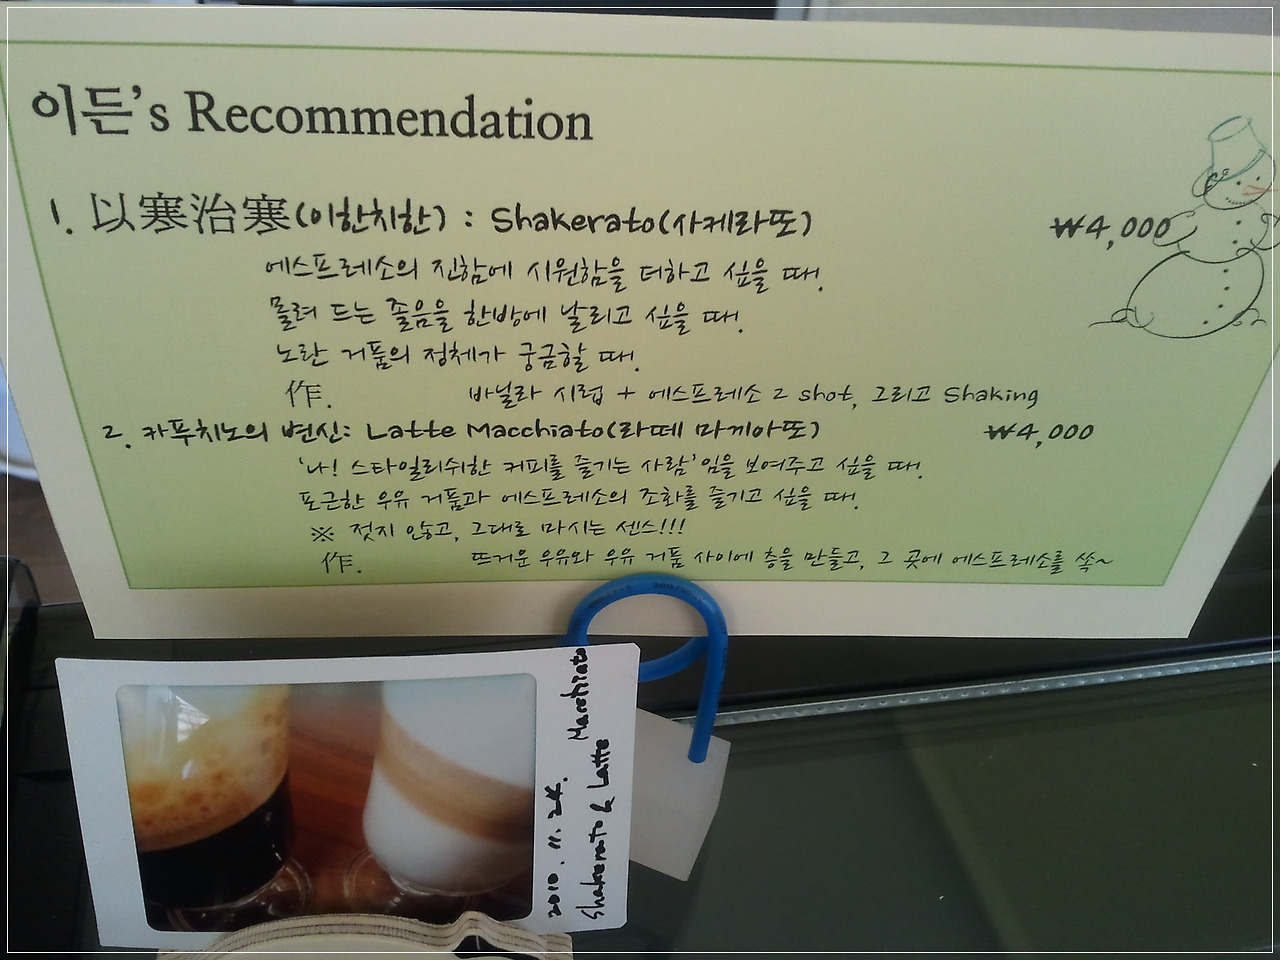 이든's Recommendation
1. 以寒治寒(이한치한) : Shakerato(사케라또) ₩4,000
에스프레소의 진함에 시원함을 더하고 싶을 때.
몰려 드는 졸음을 한방에 날리고 싶을 때.
노란 거품의 정체가 궁금할 때.
作. 바닐라 시럽 + 에스프레소 2 shot, 그리고 Shaking
2. 카푸치노의 변신: Latte Macchiato(라떼 마끼아또) ₩4,000
'나! 스타일리쉬한 커피를 즐기는 사람'임을 보여주고 싶을 때.
포근한 우유 거품과 에스프레소의 조화를 즐기고 싶을 때.
※ 젓지 않고, 그대로 마시는 센스!!!
作. 뜨거운 우유와 우유 거품 사이에 층을 만들고, 그 곳에 에스프레소를 쏙~
2010. 11. 24.
Shakerato & Latte
Macchiato